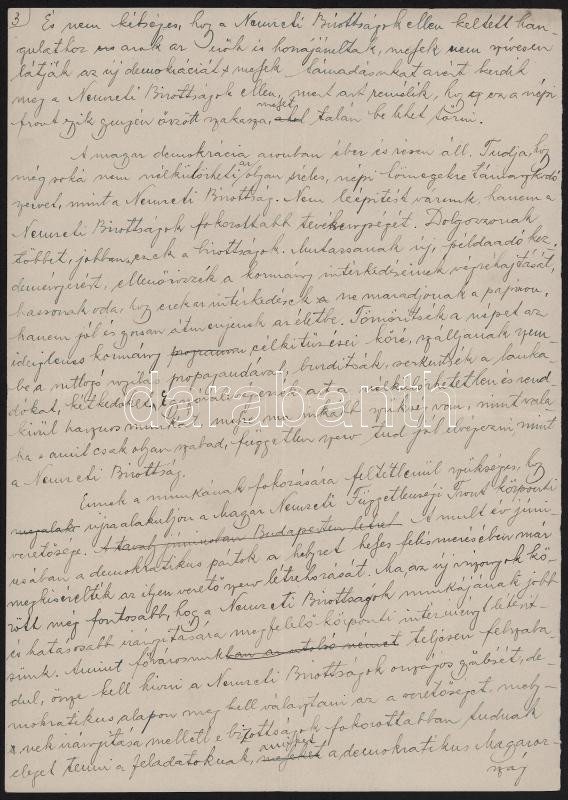 3) És nem kétséges, hogy a Nemzeti Bizottságok ellen keltett han-
gulathoz azok az urak is hozzájárultak, melyek nem szívesen
látják az új demokráciát s melyek támadásukat azért kezdik
meg a Nemzeti Bizottságok ellen, mert azt remélik, hogy ez a népi
front egyik gyengén őrzött szakasza, melyet talán be lehet törni.
A magyar demokrácia azonban éber és résen áll. Tudja, hogy
még soká nem nélkülözheti az olyan széles, népi tömegekre támaszkodó
szervet, mint a Nemzeti Bizottság. Nem leépítést várunk, hanem a
Nemzeti Bizottságok fokozottabb tevékenységét. Dolgozzanak
többet, jobban ezek a bizottságok. Mutassanak új, példaadó kez-
deményezést, ellenőrizzék a kormány intézkedéseinek végrehajtását,
hassanak oda, hogy ezek az intézkedések ne maradjanak a papíron,
hanem jól és gyorsan átmenjenek az életbe. Tömörítsék a népet az
ideiglenes kormány programm célkitűzései köré, szálljanak szem-
be a suttogó propagandával, buzdítsák, serkentsék a lanka-
dókat, kétkedőket, nélkülözhetetlen és rend-
kívül hasznos munkát, melyre ma inkább szükség van, mint vala-
ha s amit csak olyan szabad, független szerv tud jól elvégezni, mint
a Nemzeti Bizottság.
Ennek a munkának fokozására feltétlenül szükséges, hogy
megalak újraalakuljon a Magyar Nemzeti Függetlenségi Front központi
vezetősége. A tavaly júniusban Budapesten létrel A mult év júni-
usában a demokratikus pártok a helyzet helyes felismerésében már
megkísérelték az ilyen vezető szerv létrehozását. Ma, az új viszonyok kö-
zött még fontosabb, hogy a Nemzeti Bizottságok munkájának jobb
és hatásosabb irányítására megfelelő központi intézményt létesít-
sünk. Amint fővárosunk ban az utolsó német teljesen felszaba-
dul, össze kell hívni a Nemzeti Bizottságok országos gyűlését, de-
mokratikus alapon meg kell választani az a vezetőséget, mely-
nek irányítása mellett e bizottságok fokozottabban tudnak
eleget tenni a feladatoknak, melyeket a demokratikus Magyaror-
szág
darabanth